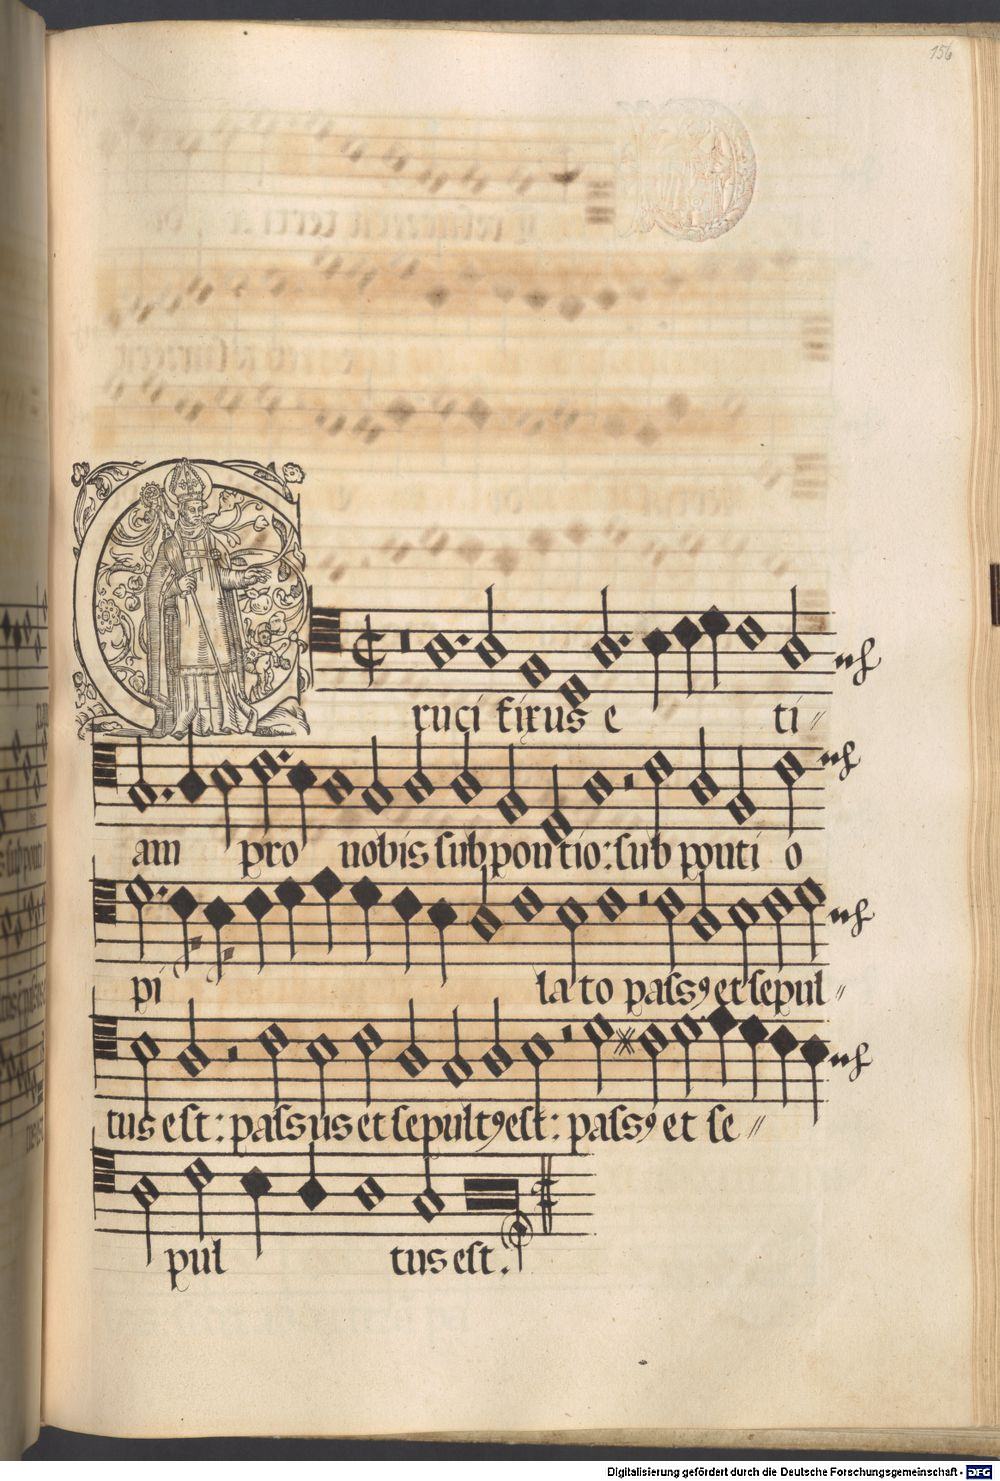 156
Cruci fixus e ti〃
am pro nobis sub pon tio: sub ponti o
pi la to passꝰ et sepul〃
tus est: passus et sepultꝰ est: passꝰ et se〃
pul tus est.
Digitalisierung gefördert durch die Deutsche Forschungsgemeinschaft - DFG